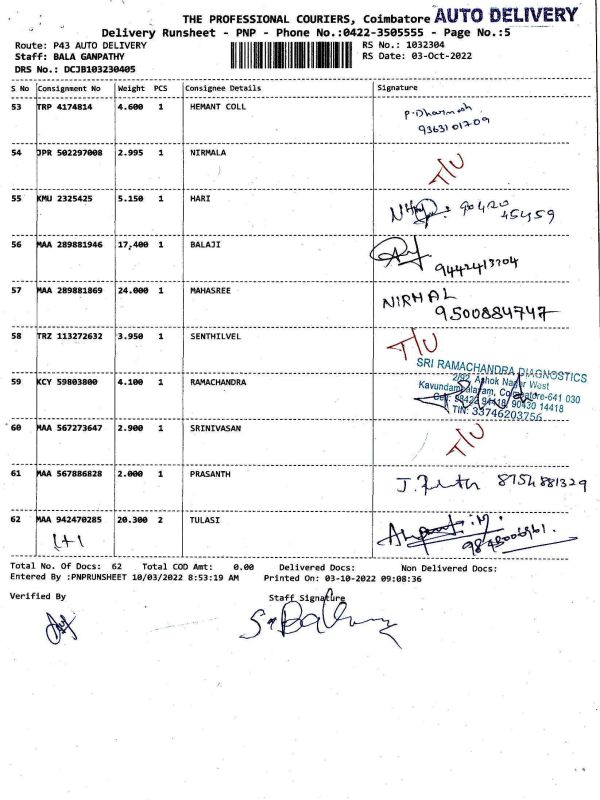 THE PROFESSIONAL COURIERS, Coimbatore AUTO DELIVERY
Delivery Runsheet - PNP - Phone No.:0422-3505555 - Page No.:5
Route: P43 AUTO DELIVERY RS No.: 1032304
Staff: BALA GANPATHY RS Date: 03-Oct-2022
DRS No.: DCJB103230405
S No Consignment No Weight PCS Consignee Details Signature
53 TRP 4174814 4.600 1 HEMANT COLL P. Dharmesh
9363101709
54 JPR 502297008 2.995 1 NIRMALA T/U
55 KMU 2325425 5.150 1 HARI 90420
45459
56 MAA 289881946 17,400 1 BALAJI
9442413204
57 MAA 289881869 24.000 1 MAHASREE NIRMAL
9500884747
58 TRZ 113272632 3.950 1 SENTHILVEL T/U
SRI RAMACHANDRA DIAGNOSTICS
2/92, Ashok Nagar West
59 KCY 59803800 4.100 1 RAMACHANDRA Kavundampalayam, Coimbatore-641 030
Cell: 98422 94418, 90430 14418
TIN: 33746203756
60 MAA 567273647 2.900 1 SRINIVASAN T/U
61 MAA 567886828 2.000 1 PRASANTH J. 8754881329
62 MAA 942470285 20.300 2 TULASI
1+1
Total No. Of Docs: 62 Total COD Amt: 0.00 Delivered Docs: Non Delivered Docs:
Entered By :PNPRUNSHEET 10/03/2022 8:53:19 AM Printed On: 03-10-2022 09:08:36
Verified By Staff Signature
S. Bala